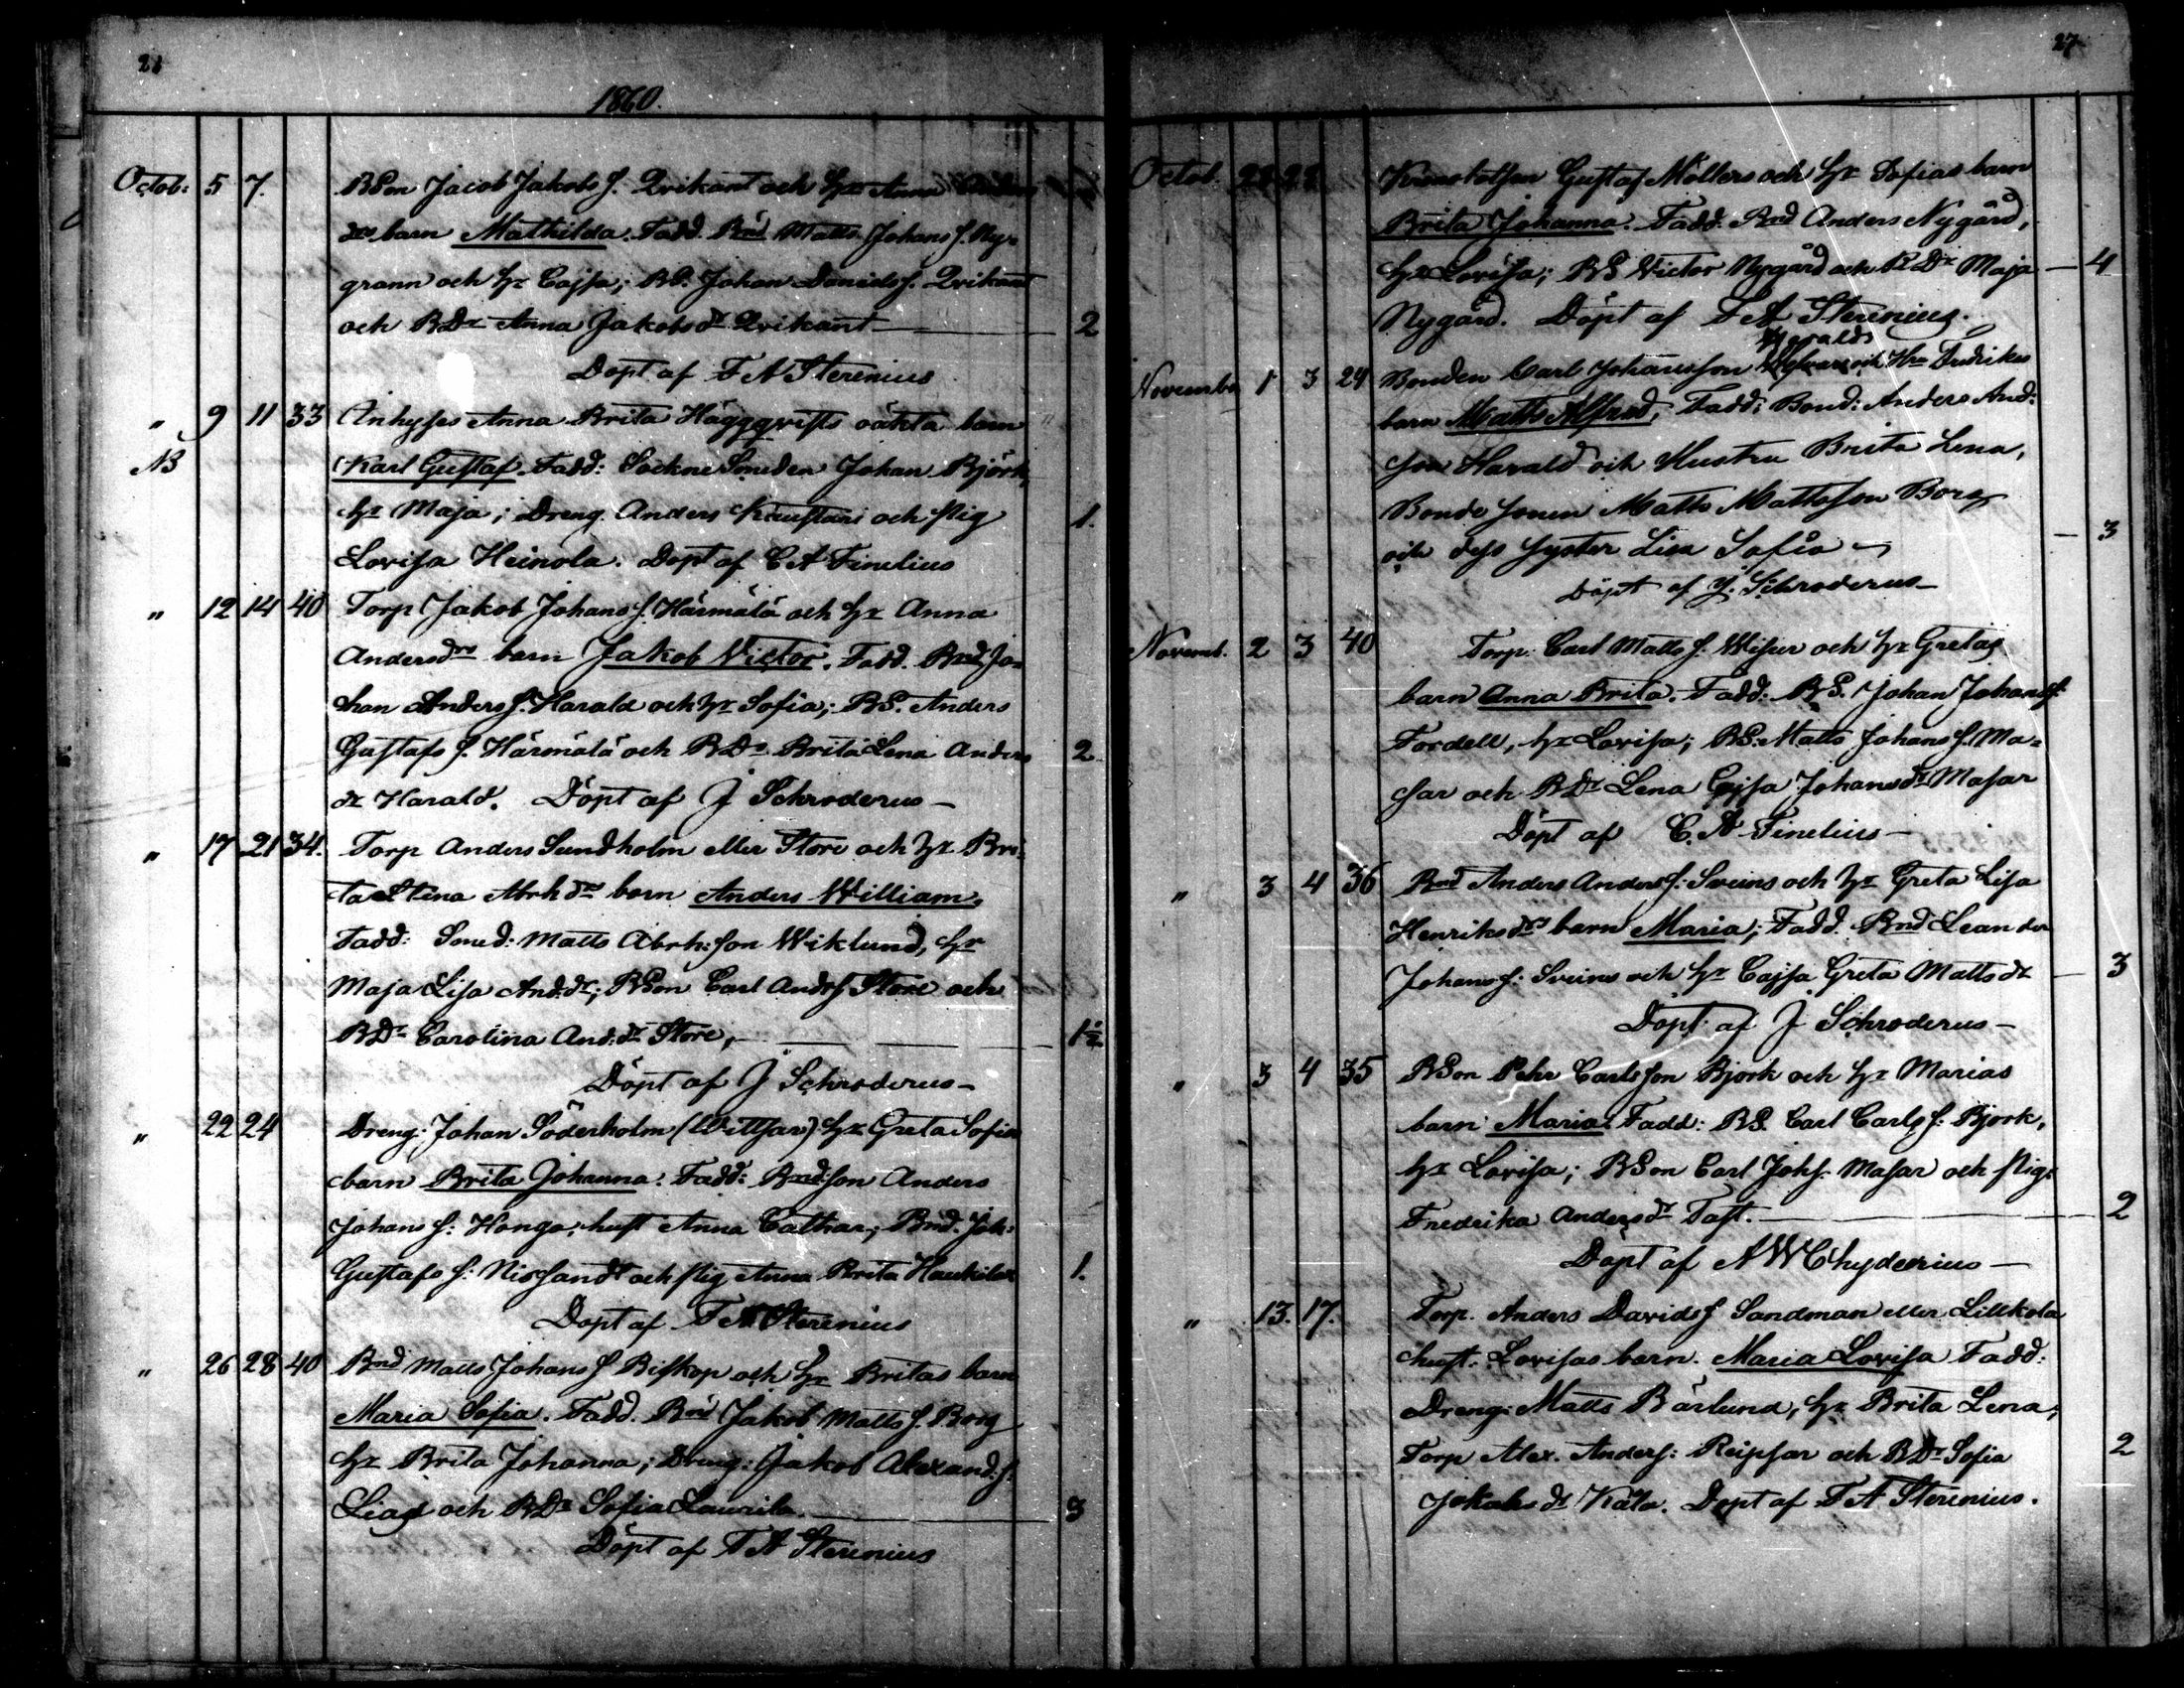 1860.
Octob: 5 7. BSon Jacob Jakobs f. Qvikant och Hr Anna
drs barn Mathilda. Fadd. Bnd Matts Johans f. Ny-
grann och Hr Cajsa; BS. Johan Daniels f. Qvikant
och BDr Anna Jakobs dr Qvikant — 2
Döpt af F A Sterenius
" 9 11 33 Inhyses Anna Brita Häggqvists oäkta barn
NB Karl Gustaf. Fadd: Sockne Smeden Johan Björk,
Hr Maja; Dreng. Anders och Pig 1.
Lovisa Heinola. Döpt af C A Finelius
" 12 14 40 Torp Jakob Johans f. Härmälä och Hr Anna
Andersdrs barn Jakob Victor. Fadd. Bnd Jo-
han Anders f. Harald och Hr Sofia; BS. Anders
Gustafs f. Härmälä och BDr Brita Lena Anders 2
dr Harald. Döpt af J Schroderus —
" 17 21 34. Torp Anders Sundholm eller Store och Hr Bri-
ta Stina Abrh drs barn Anders William,
Fadd: Smed: Matts Abrh: son Wiklund, Hr
Maja Lisa And. dr; BSon Carl Andsf Store och
BDr Carolina And: dr Store, — 1½
Döpt af J Schroderus —
" 22 24 Dreng: Johan Söderholm (Wittsar) Hr Greta Sofias
barn Brita Johanna. Fadd: Bnd: son Anders
Johans f: Hongo, hust Anna Cathar; Bnd. Joh:
Gustafs f: Nissand och Pig Anna Brita 1.
Döpt af F A Sterenius
" 26 28 40 Bnd Matts Johans f Biskop och Hr Britas barn
Maria Sofia. Fadd. Bnd Jakob Matts f. Borg
Hr Brita Johanna; Dreng: Jakob Alexand. f:
och BDr Sofia Laurila. — 3
Döpt af F A Sterenius
27
Octob. Gustaf Möllers och Hr Sofias barn
Brita Johanna. Fadd. Bnd Anders Nygård,
Hr Lovisa; BS Victor Nygård och BDr Maja — 4
Nygård. Döpt af F A Sterenius.
Haralds
November 1 3 24 Bonden Carl Johansson och Hru Fredrikas
barn Matts Alfred, Fadd: Bond: Anders And:
son Harald och Hustru Brita Lena,
Bonde sonen Matts Mattsson Borg
och dess syster Lisa Sofia — 3
Döpt af J. Schroderus —
Novemb. 2 3 40 Torp. Carl Matts f. Wiser och Hr Gretas
barn Anna Brita. Fadd: BS. Johan Johansf:
Fordell, Hr Lovisa; BS. Matts Johans f. Ma-
sar och BDr Lena Cajsa Johans dr Masar
Döpt af C. A Finelius —
" 3 4 36 Bnd Anders Anders f: Sveins och Hr Greta Lisa
Henriks drs barn Maria; Fadd. Bnd Leander
Johans f: Sveins och Hr Cajsa Greta Matts dr — 3
Döpt af J Schroderus —
" 3 4 35 BSon Pehr Carlsson Björk och Hr Marias
barn Maria. Fadd: BS. Carl Carls f: Björk,
Hr Lovisa; BSon Carl Johs. Masar och Pig:
Fredrika Anders dr Tast. — 2
Döpt af A W Chydenius —
" 13. 17. Torp. Anders Davids f Sandman eller Lillkola
hust. Lovisas barn. Maria Lovisa Fadd:
Dreng: Matts Bärlund, Hr Brita Lena;
Torp Alex. Anders f: Reipsar och BDr Sofia 2
Jakobs dr Käta. Döpt af F A Sterenius.